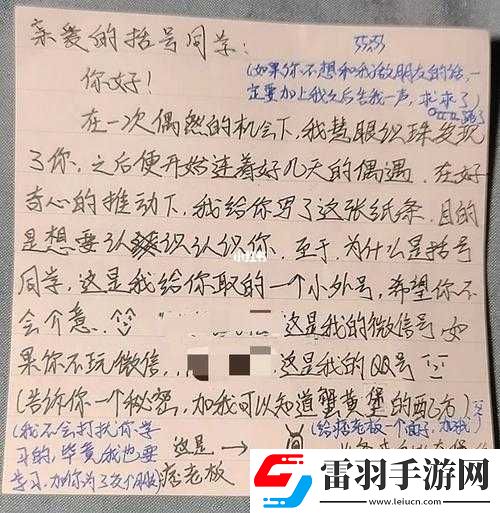 亲爱的括号同学：
你好！
(如果你不想和我做朋友的话，一
定要加上我之后告我一声，求求了)
在一次偶然的机会下，我慧眼识珠发现
了你，之后便开始连着好几天的偶遇，在好
奇心的推动下，我给你写了这张纸条，目的
是想要认识认识你，至于，为什么是括号
同学，这是我给你取的一个小外号，希望你不
会介意，
这是我的微信号，如
果你不玩微信，
这是我的QQ号
(告诉你一个秘密，加我可以知道蟹黄堡的配方)
(我不会打扰你学
习的，毕竟我也要
学习，加你为了交个朋友)
这是→
痞老板
(给痞老板一个面子，加我)
小红书
雷羽手游网
www.leiucn.com